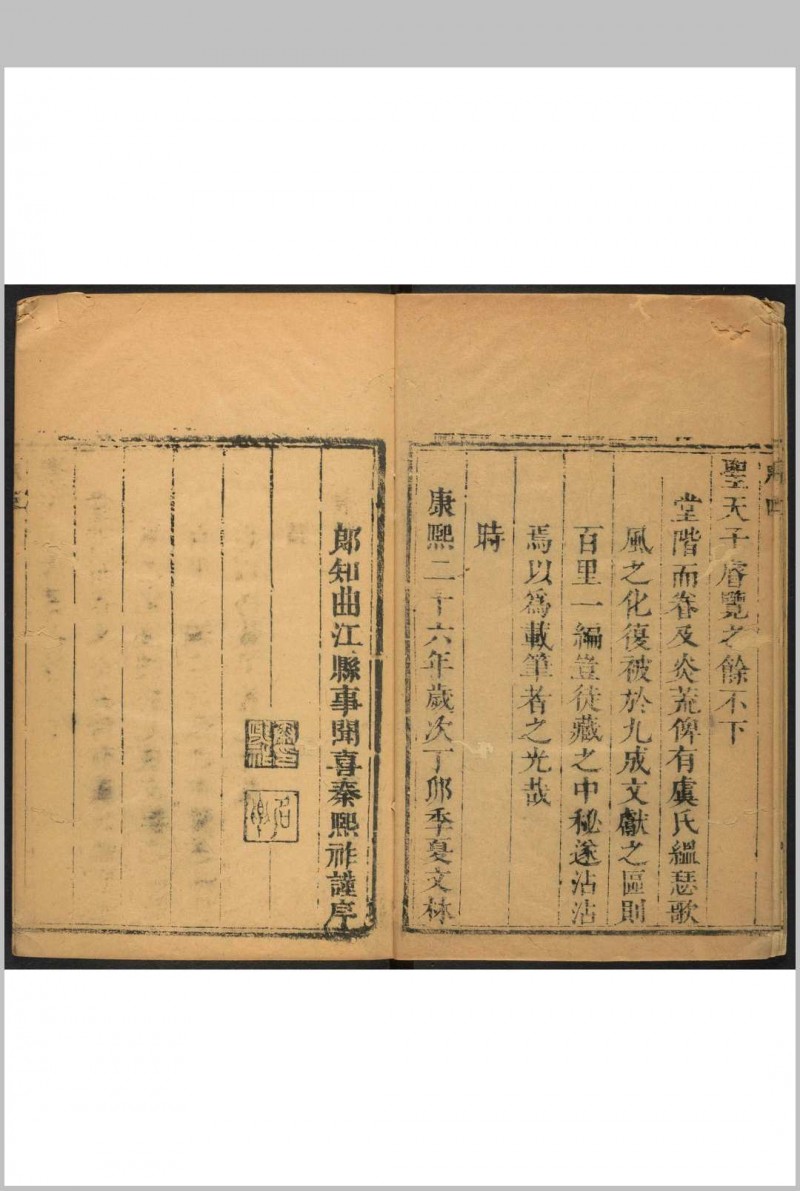 聖天子睿覽之餘不下
堂階而眷及炎荒俾有虞氏縕瑟歌
風之化復被於九成文獻之區則
百里一編豈徒藏之中秘遂沾沾
焉以為載筆者之光哉
時
康熙二十六年歲次丁卯季夏文林
郎知曲江縣事聞喜秦熙祚謹序